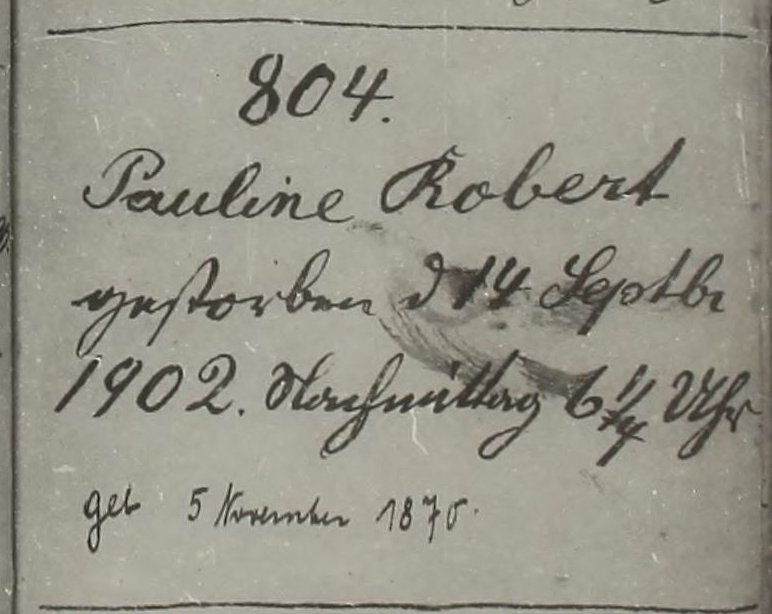 804.
Pauline Robert
gestorben d 14 Septbr
1902. Nachmittag 6 1/4 Uhr
geb 5 November 1870.